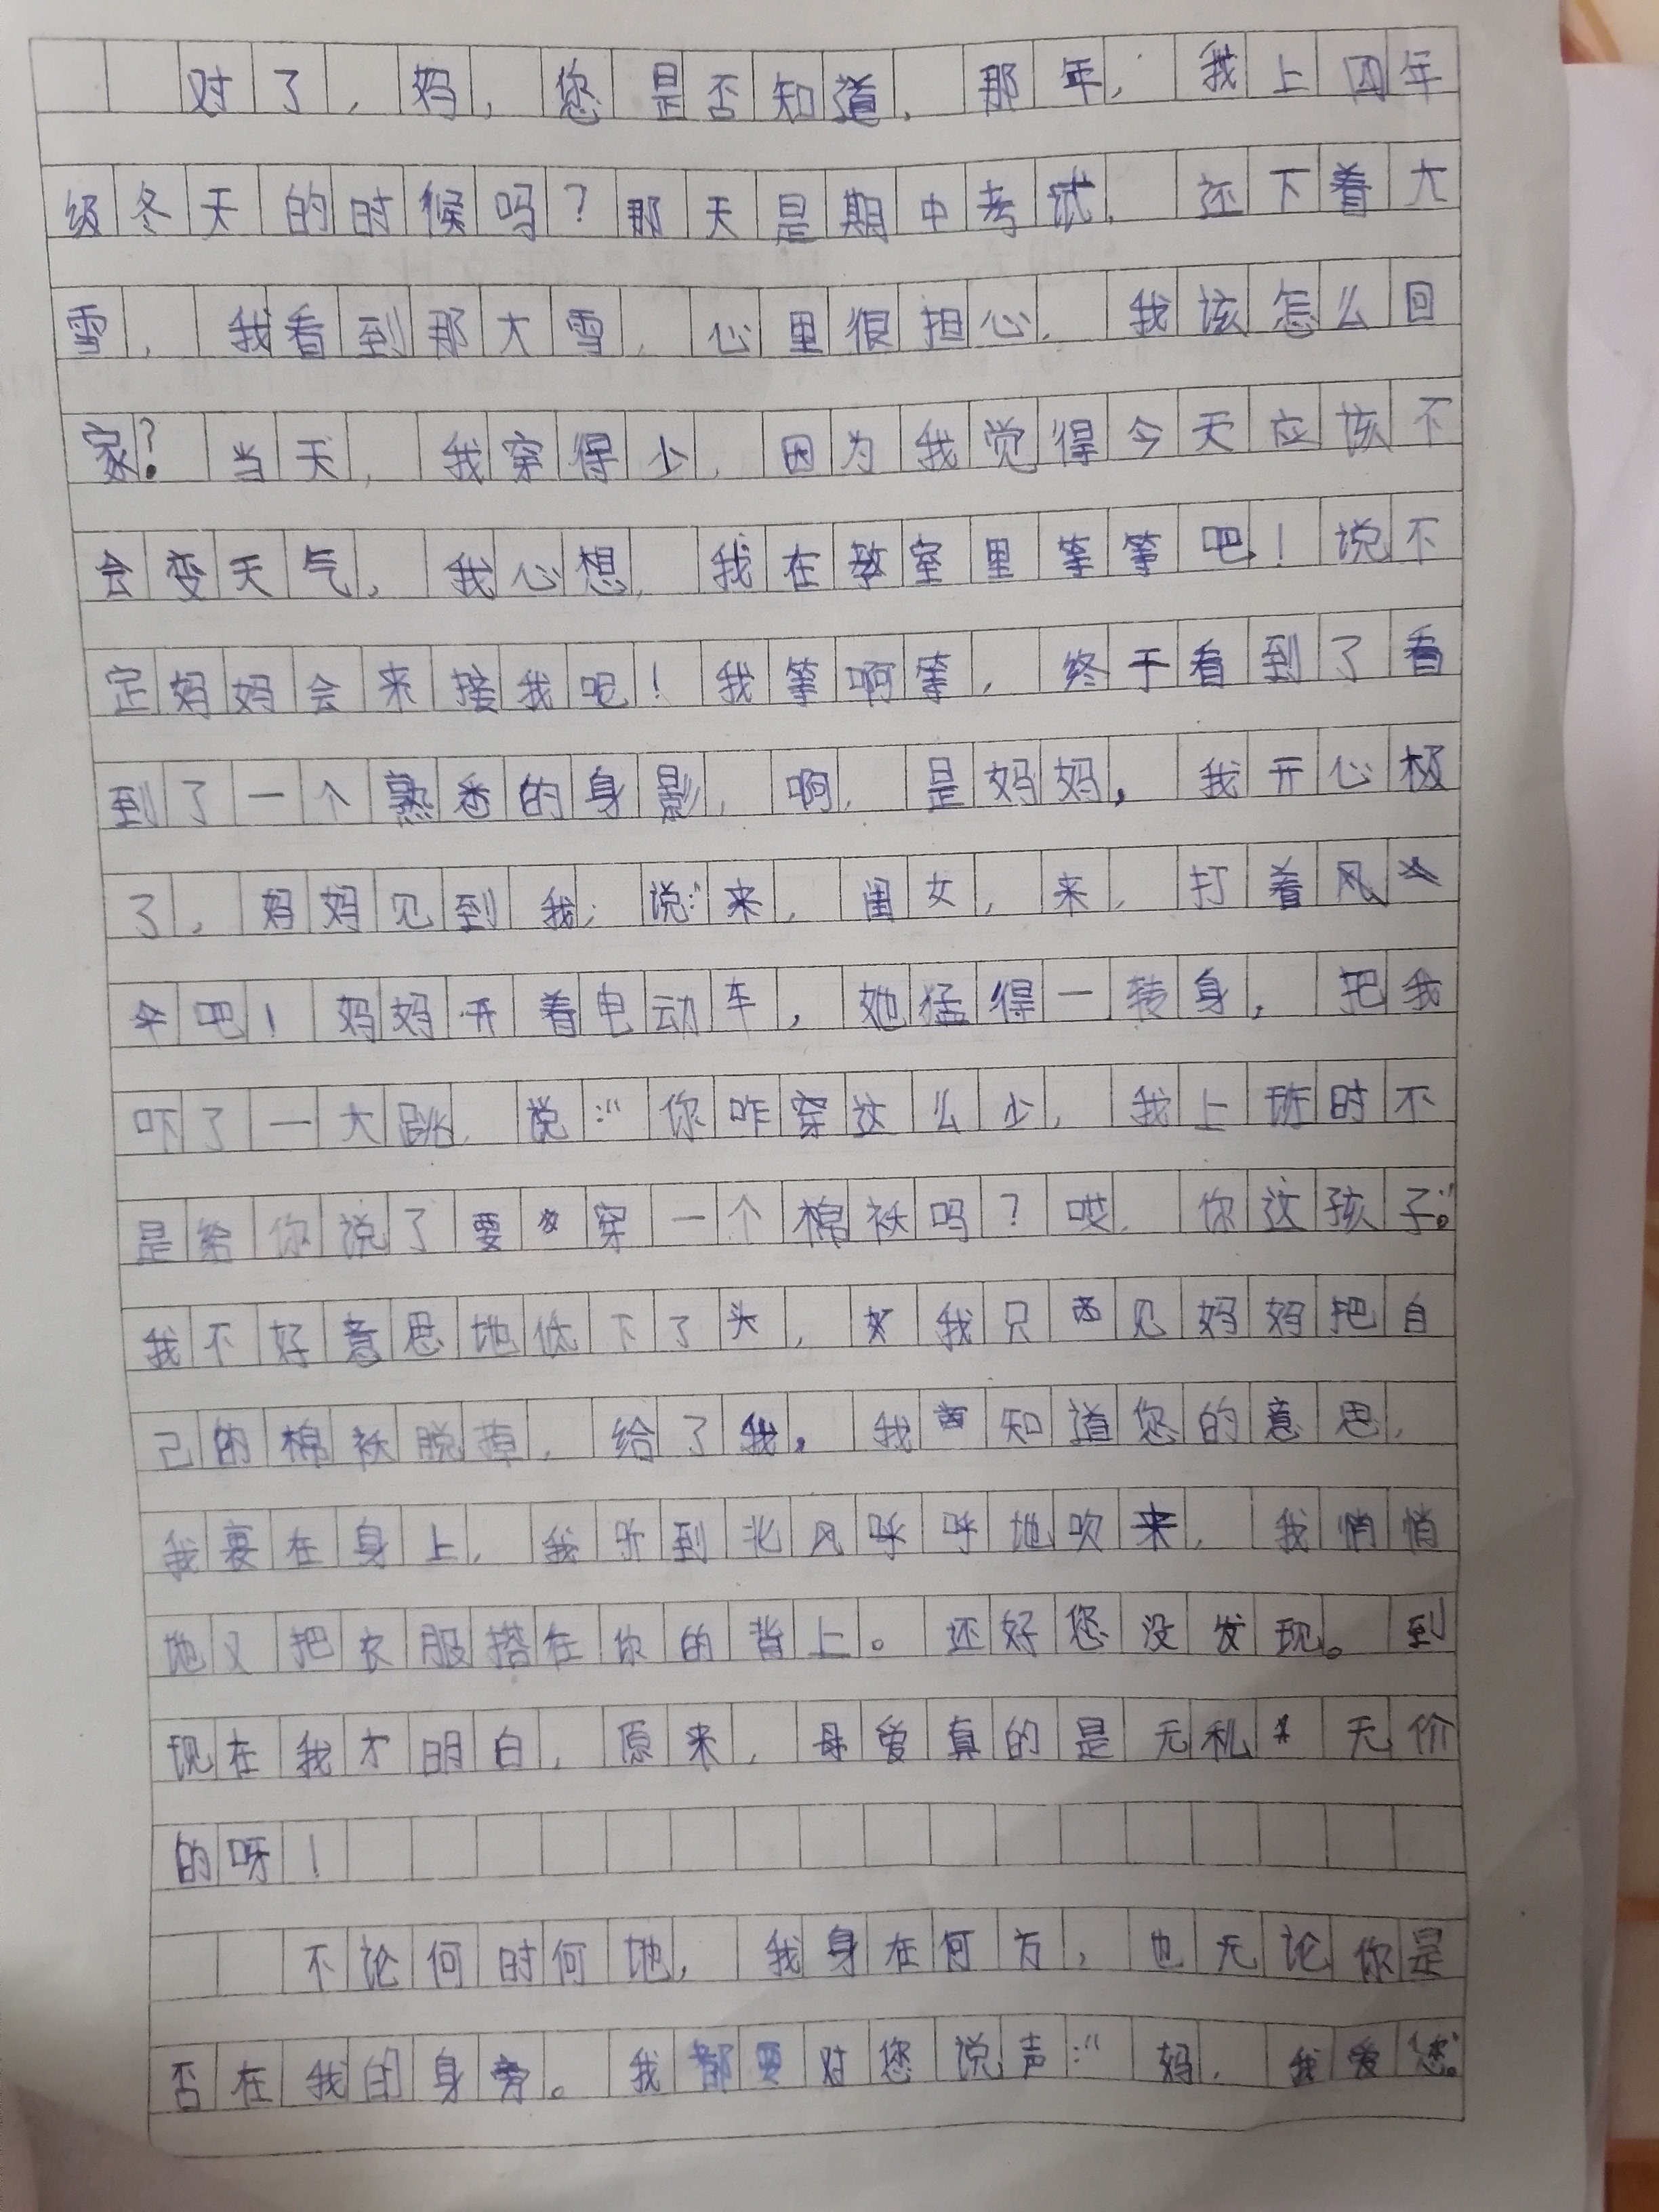 对了,妈,您是否知道,那年,我上四年
级冬天的时候吗?那天是期中考试,还下着大
雪,我看到那大雪,心里很担心,我该怎么回
家?当天,我穿得少,因为我觉得今天应该不
会变天气,我心想,我在教室里等等吧!说不
定妈妈会来接我吧!我等啊等,终于看到了看
到了一个熟悉的身影,啊,是妈妈,我开心极
了,妈妈见到我,说:“来,闺女,来,打着风
伞吧!妈妈开着电动车,她猛得一转身,把我
吓了一大跳,说:“你咋穿这么少,我上班时不
是给你说了要穿一个棉袄吗?哎,你这孩子。”
我不好意思地低下了头,我只见妈妈把自
己的棉袄脱掉,给了我,我知道您的意思,
我裹在身上,我听到北风呼呼地吹来,我悄悄
地又把衣服搭在你的背上。还好您没发现。到
现在我才明白,原来,母爱真的是无私无价
的呀!
不论何时何地,我身在何方,也无论你是
否在我的身旁。我都要对您说声:“妈,我爱您。”